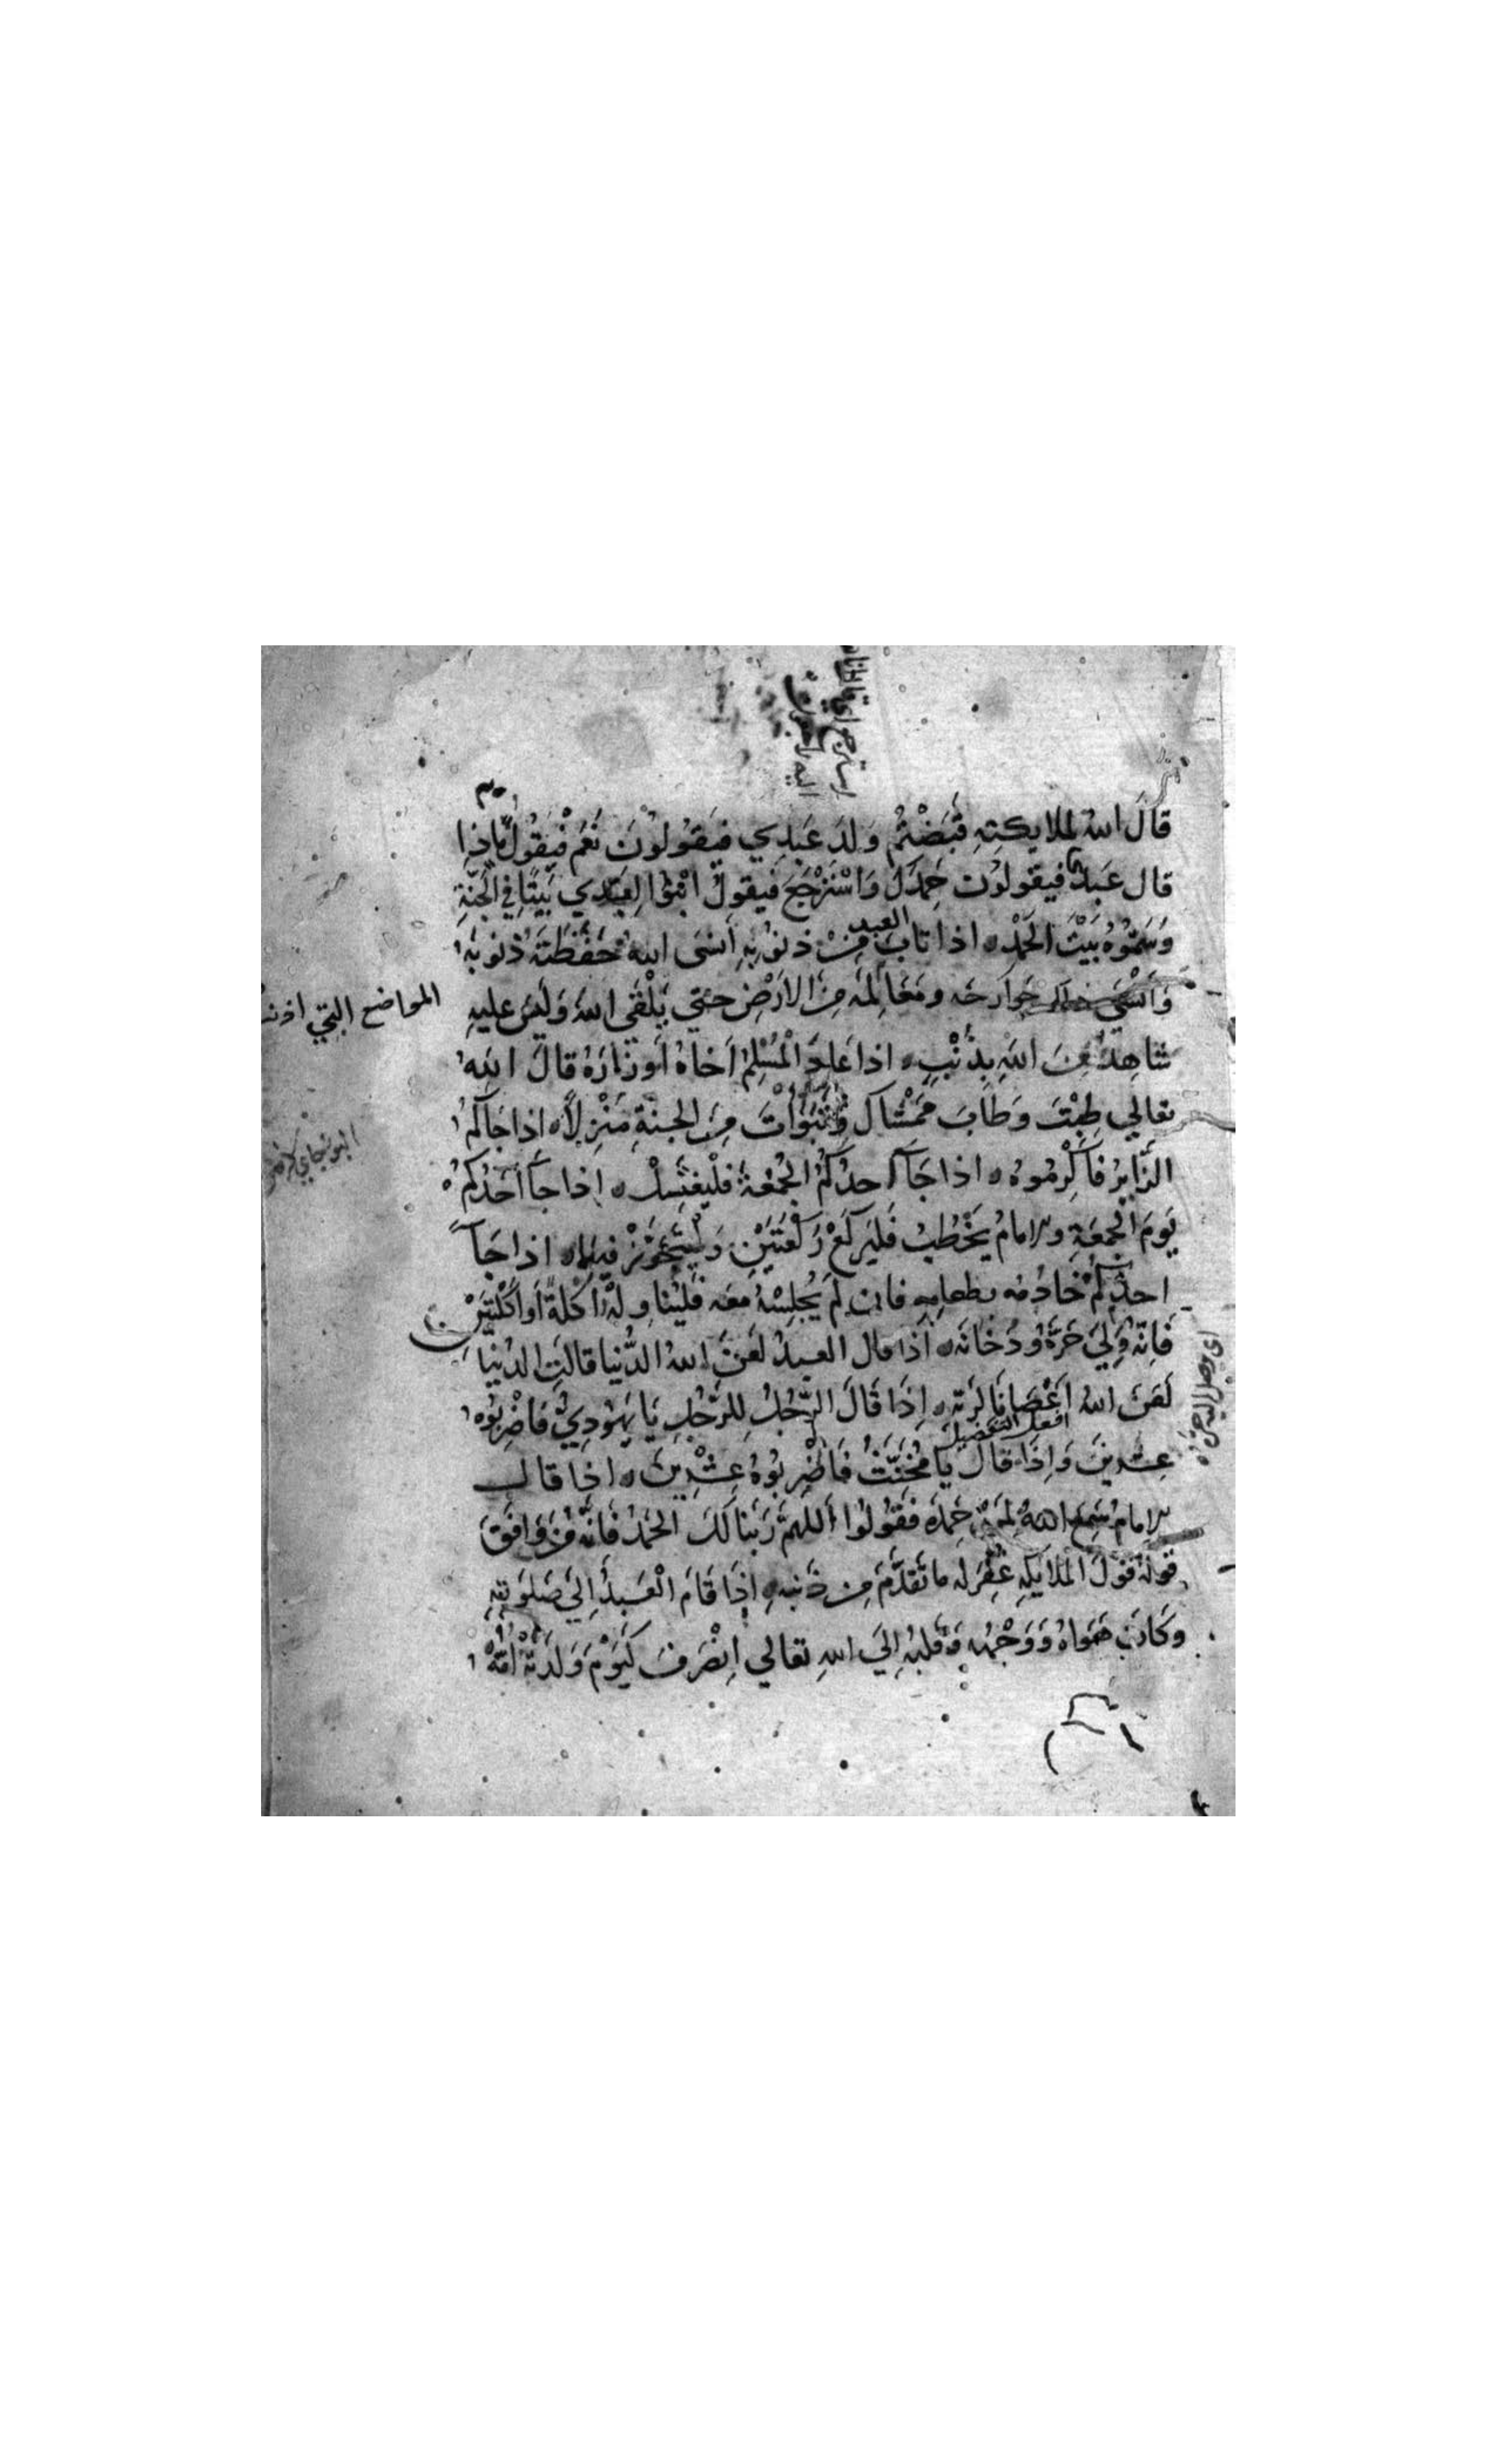 قَالَ اللهُ لِملايكَتِهِ قَبَضْتُم وَلَدَ عَبْدِي فَيَقُولُوْنَ نَعَمْ فَيَقُولُ مَاذا
قال عَبْدِي فيقولون حَمِدَكَ وَاسْتَرْجَعَ فَيقولُ ابْنُوا لِعَبْدِي بَيْتًا فِي الجَنَّةِ
وَسَمُّوُهُ بَيْتَ الحَمْدِ اذا تابَ العبد مِنْ ذنُوبِهِ اَنسَى اللهُ حَفَظَتَهُ ذُنوبَهُ
وَانْسَى جَوَارحَه ومَعَالِمَه مِنَ الارْضِ حتي يَلْقَى اللهَ وَلَيْسَ عليهِ
المواضع التي
شَاهِدٌ مِنَ اللهِ بِذَنْبٍ اذا عَادَ الْمُسْلِمُ اَخاهُ اَو زَارَهُ قالَ اللهُ
تعالي طِبْتَ وَطَابَ مَمْشَاكَ وَتَبَوَّاْتَ مِنَ الجنةِ مَنْزِلًا اذا جَاكُم
الزَّايِرُ فَاَكْرِمُوهُ اذا جَآ احدُكُمُ الجُمُعَةَ فلْيَغْتَسِلْ اِذا جآ اَحَدُكُم
يَومَ الجُمعَةِ والامامُ يَخْطُبُ فَليَركَعْ رَكْعَتَيْنِ وَلْيَتَجَوَّزْ فيهما اذا جَآ
احدَكُمْ خَادُمُه بطعامِهِ فان لَمْ يُجْلِسْهُ مَعه فَلْيُناوِلهُ اُكْلةً اَو اُكْلَتَيْنِ
فَاِنّهُ وَلِيَ حَرَّهُ وَدُخَانَه اذا قال العبدُ لَعَنَ اللهُ الدُّنيا قالَتِ الدنيا
لَعَنَ اللهُ اَعْصَانَا لِرَبّهِ اِذَا قَالَ الرَّجُلُ لِلرَّجُلِ يَا يَهُودِيُّ فَاضْرِبُوْهُ
افعل التفضيل
عِشرينَ وَاِذَا قَالَ يَا مُخَنَّثُ فَاضْرِبُوْهُ عِشْرِيْنَ اذا قال
الامامُ سَمِعَ اللهُ لِمَنْ حَمِدَه فَقُولُوا اَللهمّ رَبَّنا لَكَ الحَمْدُ فَاِنَّهُ مَنْ وَافَقَ
قولُهُ قَوْلَ المَلَايكَةِ غُفِرَ له ما تَقدَّمَ مِن ذَنبِهِ اِذَا قَامَ الْعَبدُ اِلَي صَلوتِهِ
وَكَانَ هَوَاهُ وَوَجْهُه وَقلبُه اِلَيَ اللهِ تعالي اِنْصَرفَ كَيَوْمَ وَلَدَتْهُ اُمّهُ